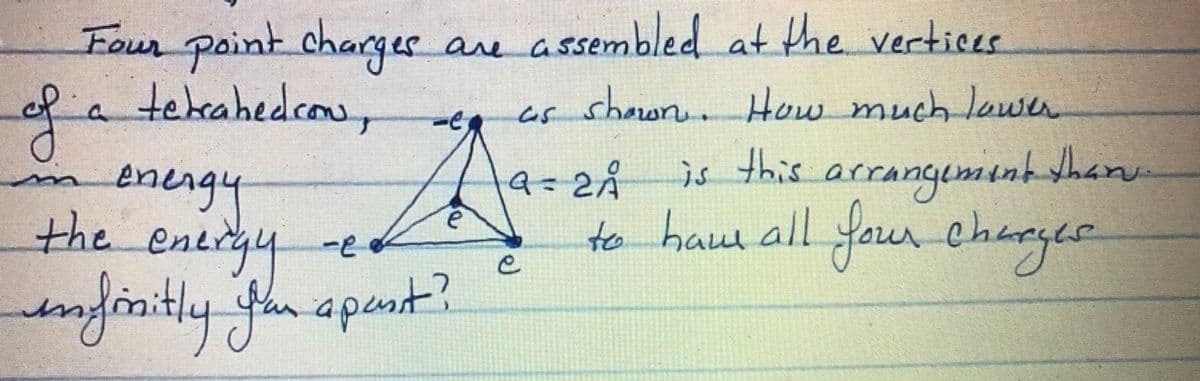 Four point charges are assembled at the vertices
of a tetrahedron, -e as shown. How much lower
in energy a = 2Å is this arrangement than
the energy -e e e to have all four charges
infinitly far apart?